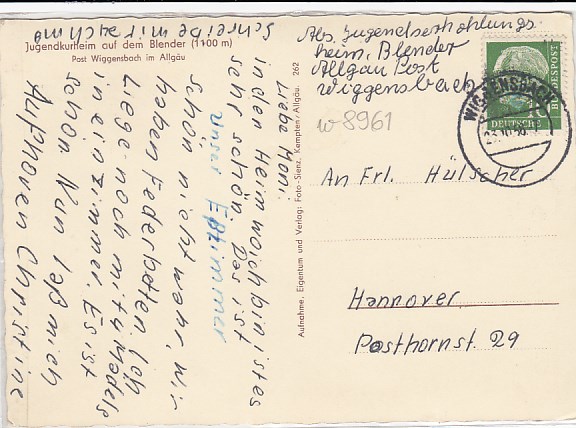 Jugendkurheim auf dem Blender (1100 m)
Post Wiggensbach im Allgäu
Liebe Moni!
in den Heim wo ich bin ist es
sehr schön. Das ist
unser Eßzimmer
schön nicht wahr, wir
haben Federbetten. Ich
Liege noch mit 4 Mädels
in ein Zimmer. Es ist
schön. Nun laß mich
Aufhören Christine
Schreibe mir auch mal
Aufnahme, Eigentum und Verlag: Foto-Sienz, Kempten/Allgäu. 262
Abs. Jugenderhohlungs
heim, Blender
Allgäu Post
Wiggensbach
w 8961
DEUTSCHE
BUNDESPOST
WIGGENSBACH
An Frl. Hülscher
Hannover
Posthornst. 29